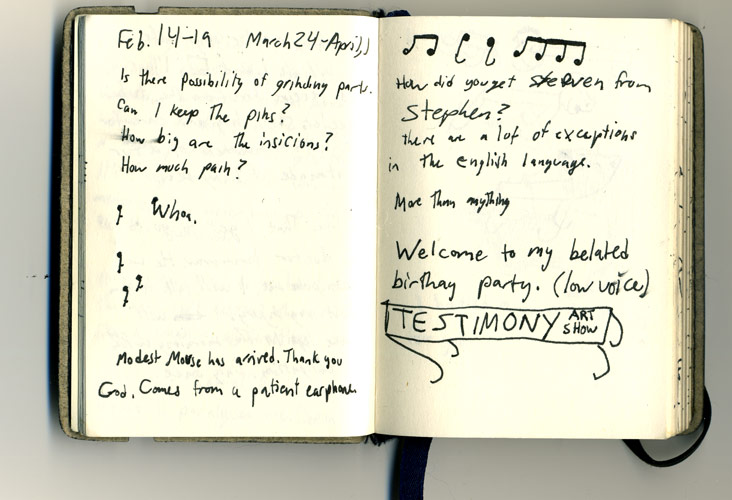 Feb. 14-19 March 24-April,1
Is there possibility of grinding part.
Can I keep the pins?
How big are the insicions?
How much pain?
Whoa.
Modest Mouse has arrived. Thank you
God. Comes from a patient earphone
How did you get Steeven from
Stephen?
there are a lot of exceptions
in the english language.
More than anything
Welcome to my belated
birthay party. (low voice)
TESTIMONY ART SHOW